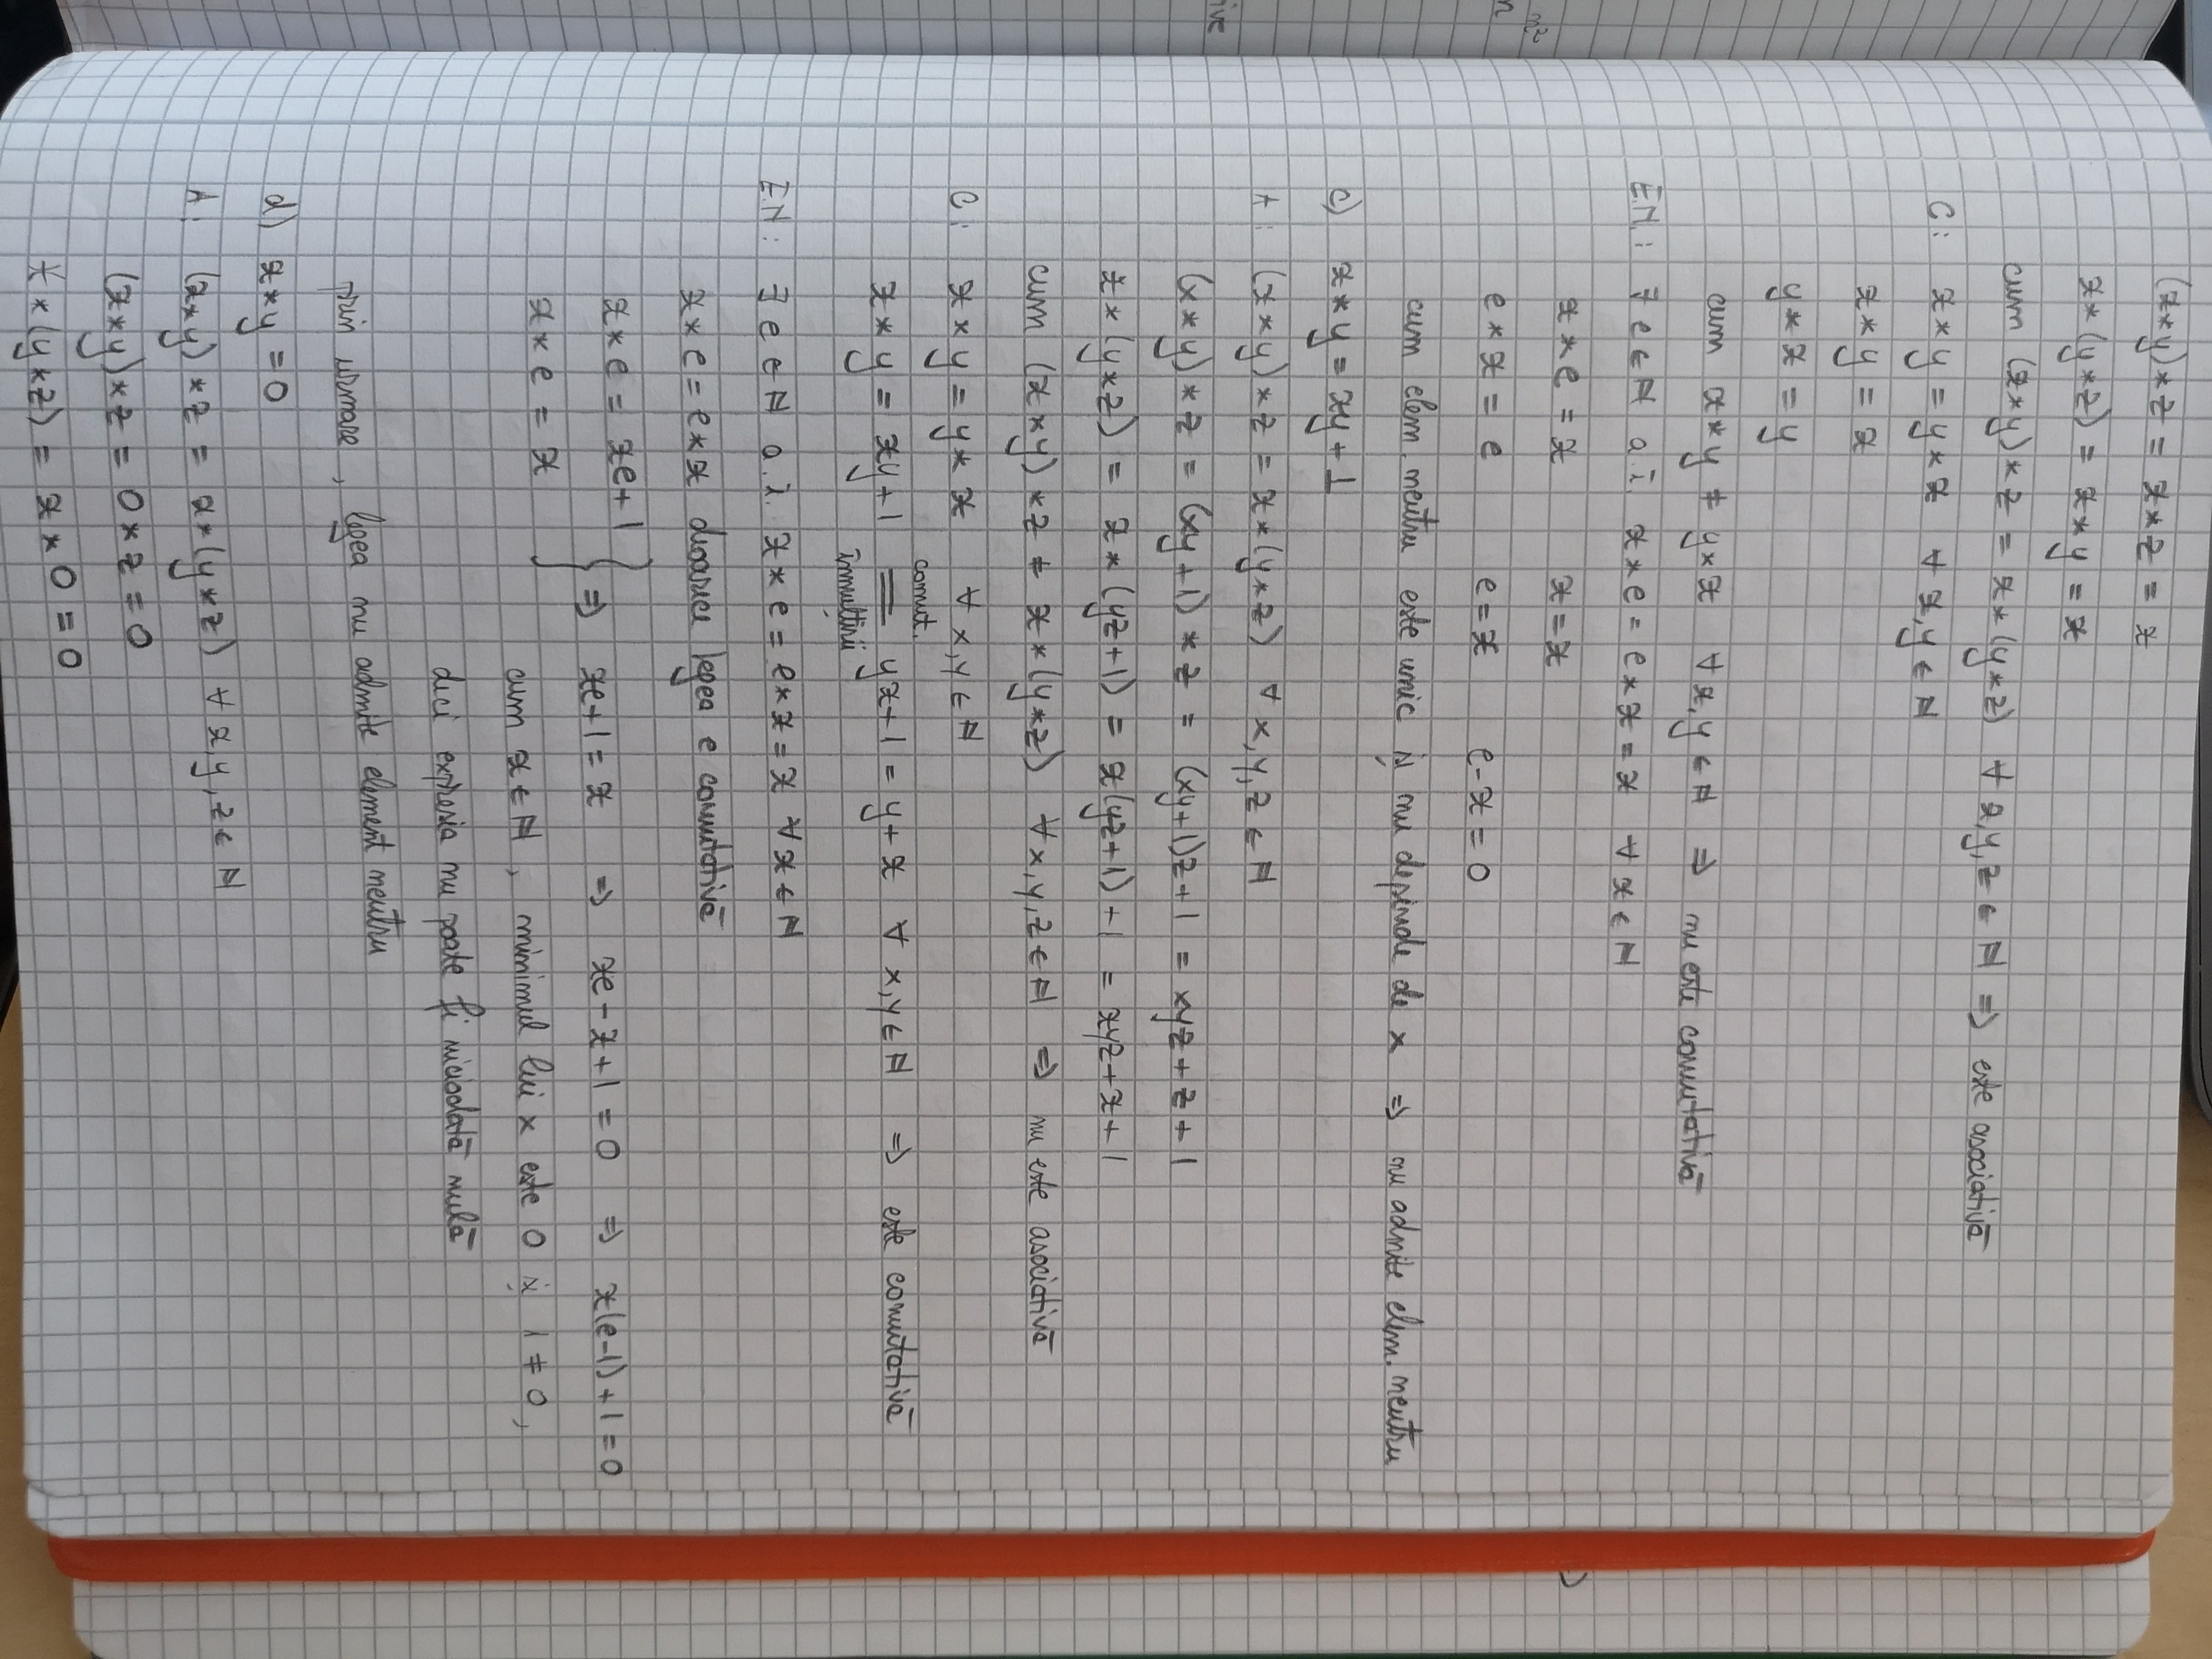 (x*y)*z = x*z = x
x*(y*z) = x*y = x
cum (x*y)*z = x*(y*z) ∀ x,y,z ∈ ℕ => este asociativă
C: x*y = y*x ∀ x,y ∈ ℕ
x*y = x
y*x = y
cum x*y ≠ y*x ∀ x,y ∈ ℕ => nu este comutativă
E.N.: ∃ e ∈ ℕ a.î. x*e = e*x = x ∀ x ∈ ℕ
x*e = x x = x
e*x = e e = x e-x = 0
cum elem. neutru este unic și nu depinde de x => nu admite elem. neutru
c) x*y = xy+1
A: (x*y)*z = x*(y*z) ∀ x,y,z ∈ ℕ
(x*y)*z = (xy+1)*z = (xy+1)z+1 = xyz+z+1
x*(y*z) = x*(yz+1) = x(yz+1)+1 = xyz+x+1
cum (x*y)*z ≠ x*(y*z) ∀ x,y,z ∈ ℕ => nu este asociativă
C: x*y = y*x ∀ x,y ∈ ℕ
comut.
x*y = xy+1 = yx+1 = y*x ∀ x,y ∈ ℕ => este comutativă
înmulțirii
E.N: ∃ e ∈ ℕ a.î. x*e = e*x = x ∀ x ∈ ℕ
x*e = e*x deoarece legea e comutativă
x*e = xe+1
x*e = x } => xe+1 = x => xe-x+1 = 0 => x(e-1)+1 = 0
cum x ∈ ℕ, minimul lui x este 0 și 1 ≠ 0,
deci expresia nu poate fi niciodată nulă
prin urmare, legea nu admite element neutru
d) x*y = 0
A: (x*y)*z = x*(y*z) ∀ x,y,z ∈ ℕ
(x*y)*z = 0*z = 0
x*(y*z) = x*0 = 0